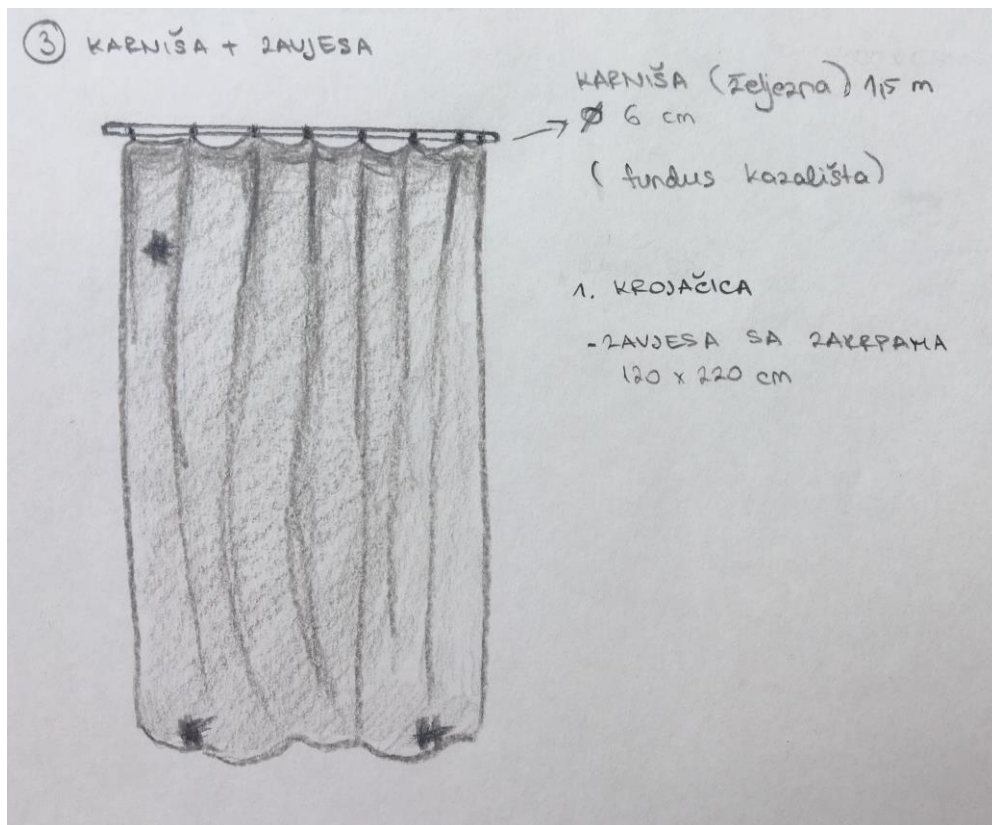 3 KARNIŠA + ZAVJESA
KARNIŠA (željezna) 1,5 m
Ø 6 cm
(fundus kazališta)
1. KROJAČICA
- ZAVJESA SA ZAKRPAMA
120 x 220 cm